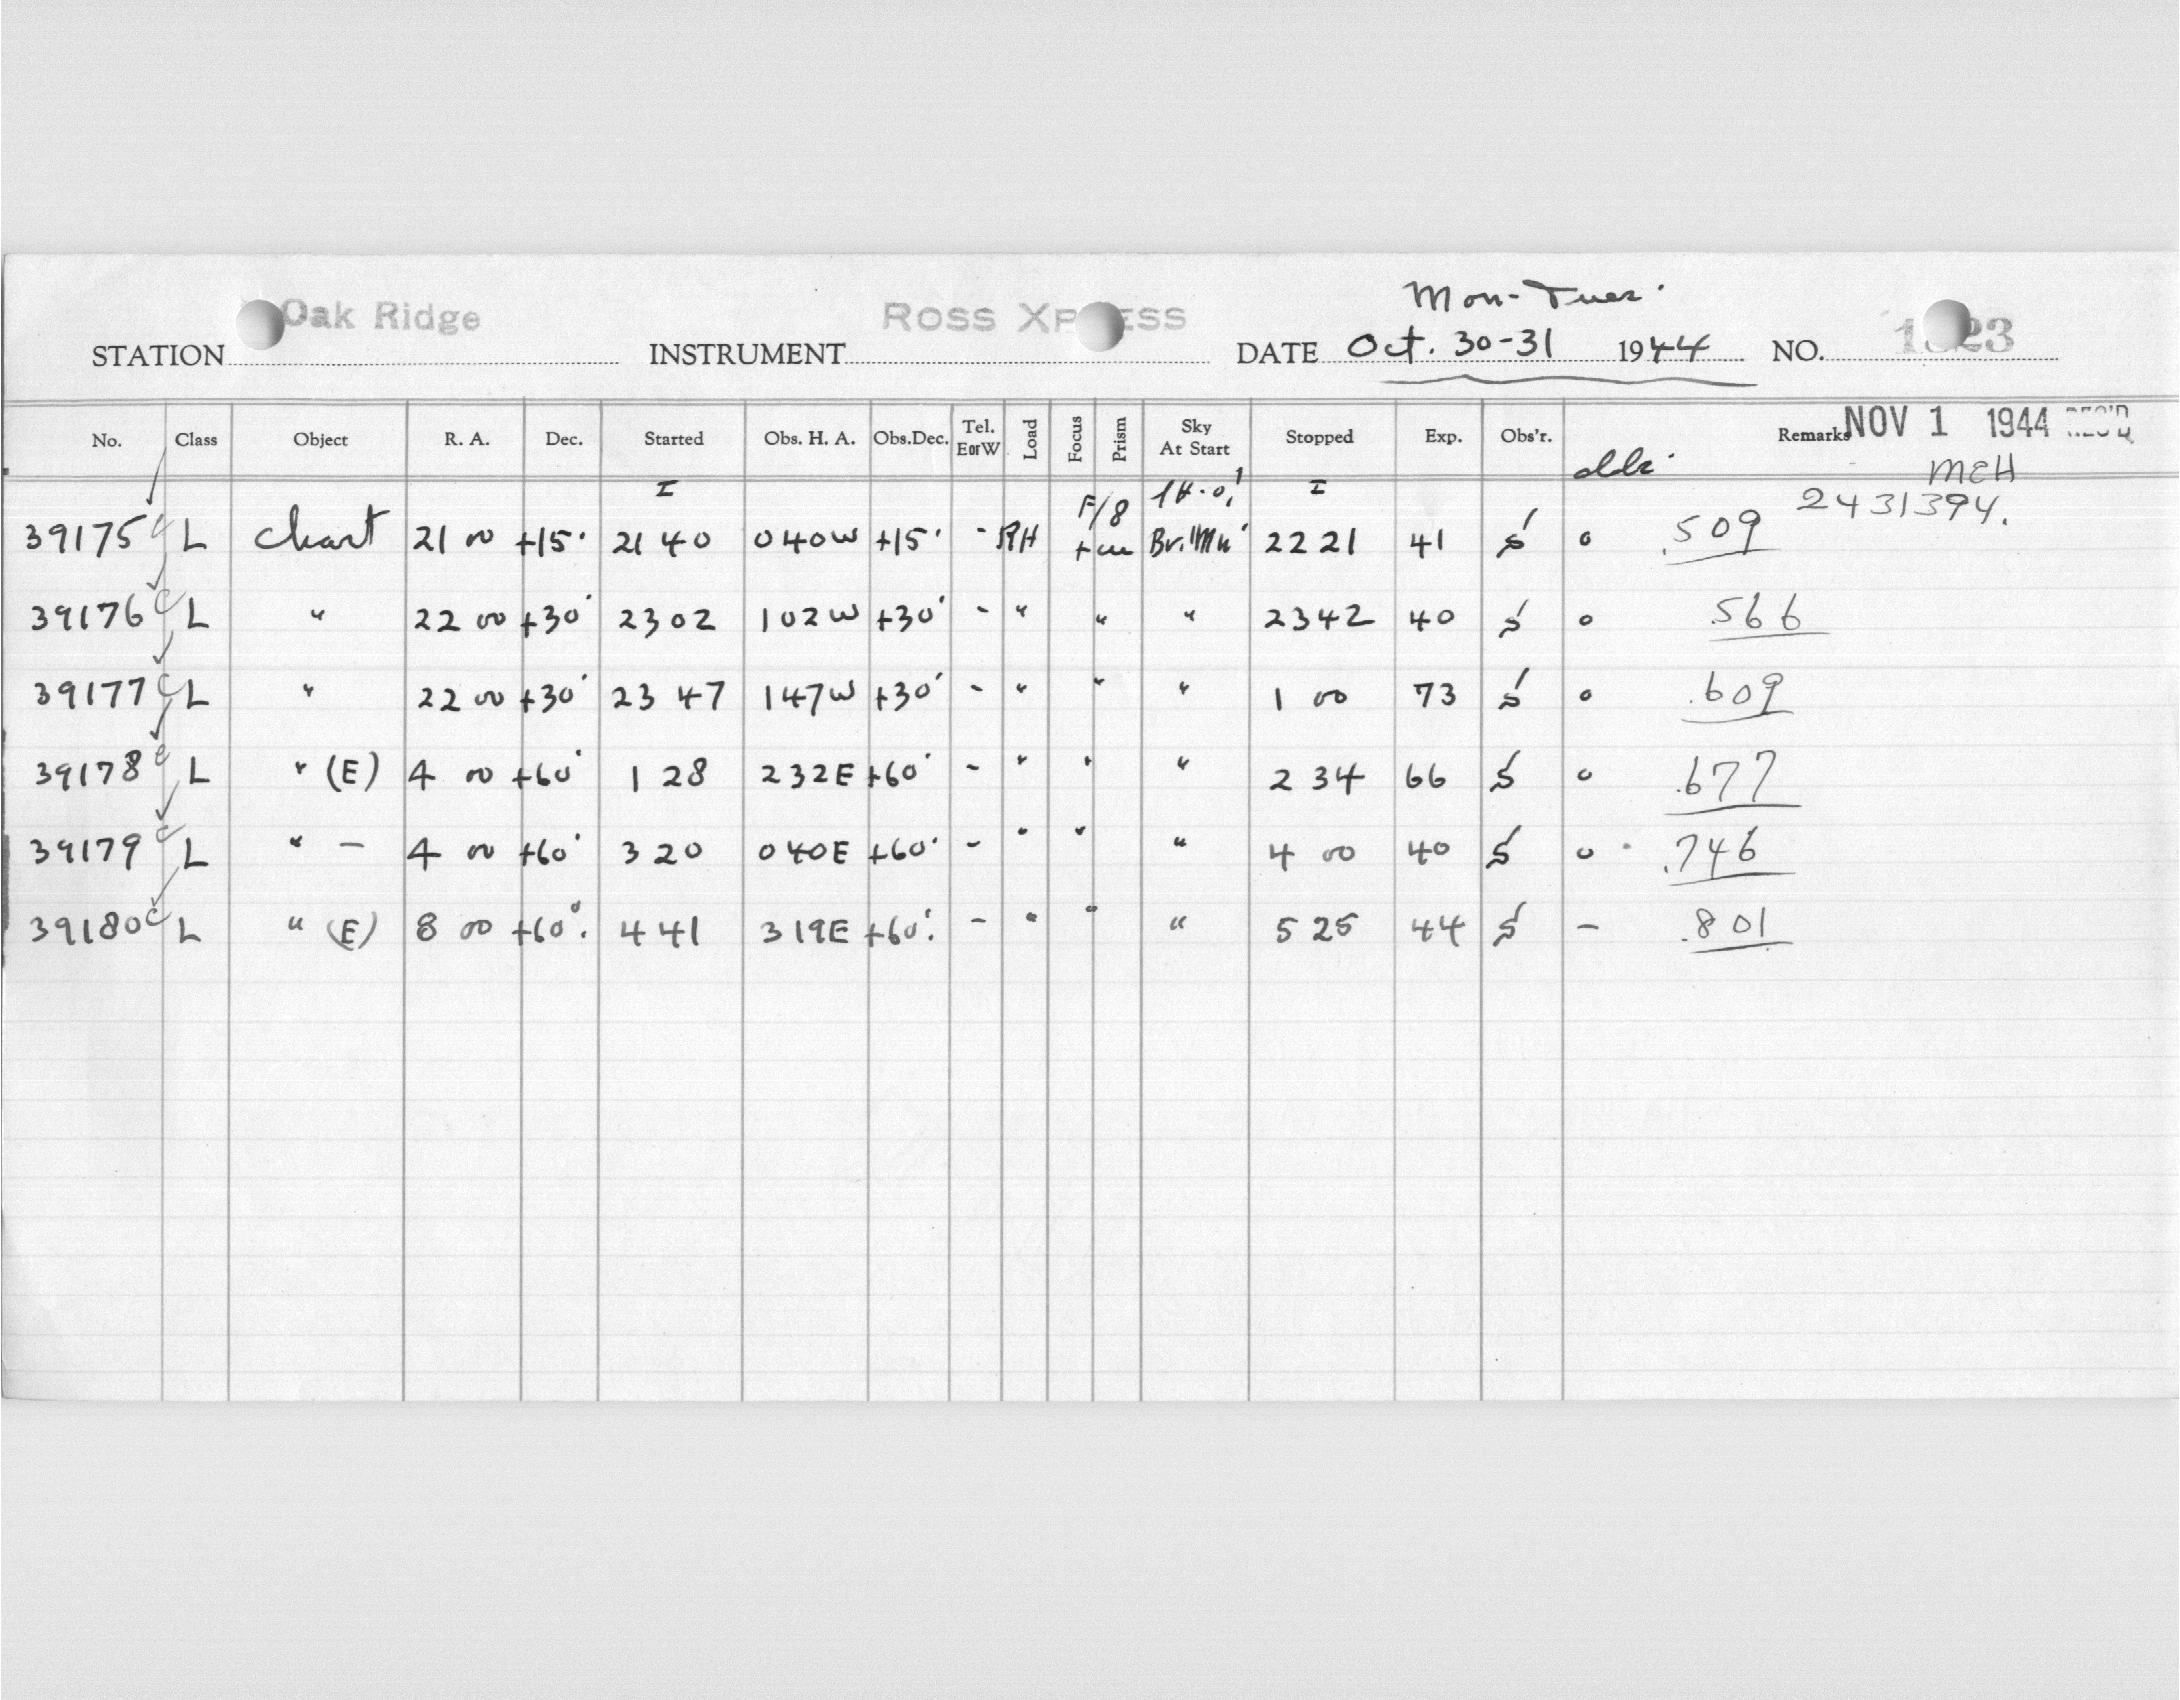 Mon-Tues.
Oak Ridge ROSS XPRESS
STATION INSTRUMENT DATE Oct. 30-31 1944 NO. 23
No. Class Object R. A. Dec. Started Obs. H. A. Obs.Dec. Tel. EorW Load Focus Prism Sky At Start Stopped Exp. Obs'r. Remarks NOV 1 1944 REC'D
MEH
I F/8 I 2431394.
39175 c L Chart 21 00 +15° 21 40 0 40 W +15° - RH Br. Mn 22 21 41 S 0 .509
39176 c L " 22 00 +30° 23 02 1 02 W +30° - " " " 23 42 40 S 0 .566
39177 c L " 22 00 +30° 23 47 1 47 W +30° - " " " 1 00 73 S 0 .609
39178 c L " (E) 4 00 +60° 1 28 2 32 E +60° - " " " 2 34 66 S 0 .677
39179 c L " - 4 00 +60° 3 20 0 40 E +60° - " " " 4 00 40 S 0 .746
39180 c L " (E) 8 00 +60° 4 41 3 19 E +60° - " " " 5 25 44 S - .801